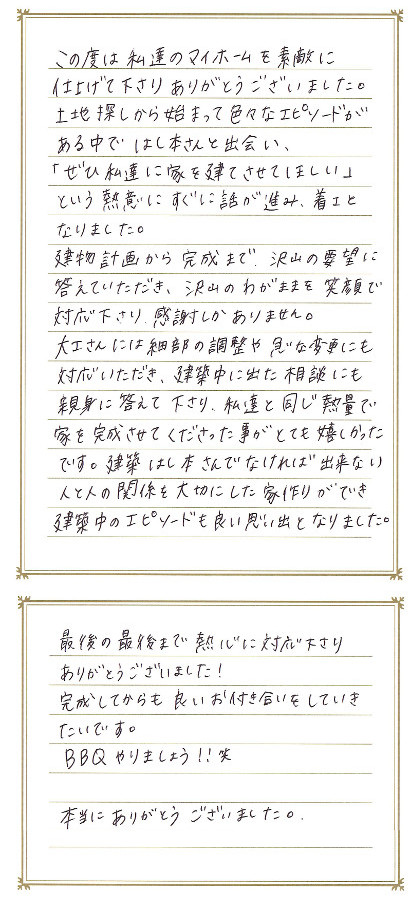 この度は私達のマイホームを素敵に
仕上げて下さりありがとうございました。
土地探しから始まって色々なエピソードが
ある中ではし本さんと出会い、
「ぜひ私達に家を建てさせてほしい」
という熱意にすぐに話が進み、着工と
なりました。
建物計画から完成まで、沢山の要望に
答えていただき、沢山のわがままを笑顔で
対応下さり、感謝しかありません。
大工さんには細部の調整や急な変更にも
対応いただき、建築中に出た相談にも
親身に答えて下さり、私達と同じ熱量で
家を完成させてくださった事がとても嬉しかった
です。建築はし本さんでなければ出来ない
人と人の関係を大切にした家作りができ
建築中のエピソードも良い思い出となりました。
最後の最後まで熱心に対応下さり
ありがとうございました!
完成してからも良いお付き合いをしていき
たいです。
BBQやりましょう!!笑
本当にありがとうございました。